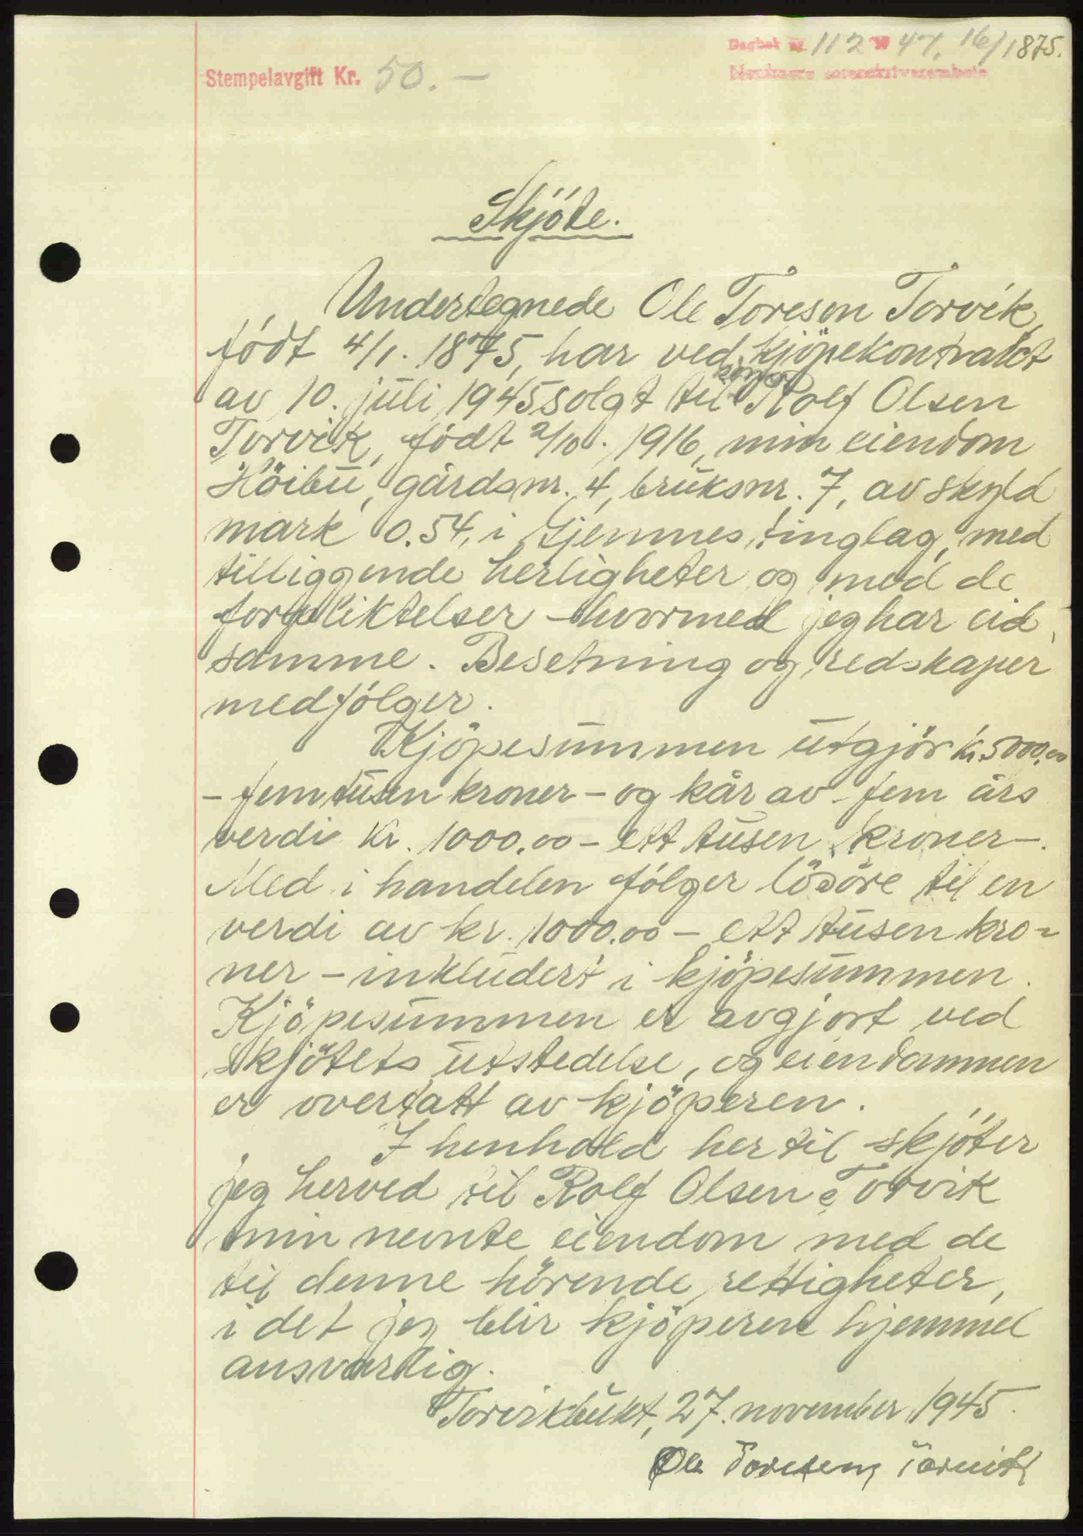 Dagbok nr. 112 19 47. 16/1 1875.
Stempelavgift Kr. 50. —
Nordmøre sorenskriverembete
Skjöte.
Undertegnede Ole Toresen Torvik,
født 4/1. 1875, har ved kjöpekontrakt
av 10. juli 1945 solgt til sönn Rolf Olsen
Torvik, født 2/10. 1916, min eiendom
Höibu, gårdsnr. 4, bruksnr. 7, av skyld
mark 0.54, i Gjemnes tinglag, med
tilliggende herligheter og med de
forpliktelser - hvormed jeg har eid
samme. Besetning og redskaper
medfölger.
Kjöpesummen utgjör kr. 5000,00
- femtusen kroner - og kår av fem års
verdi kr. 1000,00 - ett tusen kroner -.
Med i handelen fölger lösöre til en
verdi av kr. 1000,00 - ett tusen kro-
ner - inkludert i kjöpesummen.
Kjöpesummen er avgjort ved
skjötets utstedelse, og eiendommen
er overtatt av kjöperen.
I henhold hertil skjöter
jeg herved til Rolf Olsen Torvik
min nevnte eiendom med de
til denne hörende rettigheter,
i det jeg blir kjöperen hjemmel
ansvarlig.
Torvikbukt, 27. november 1945.
Ole Toresen Torvik